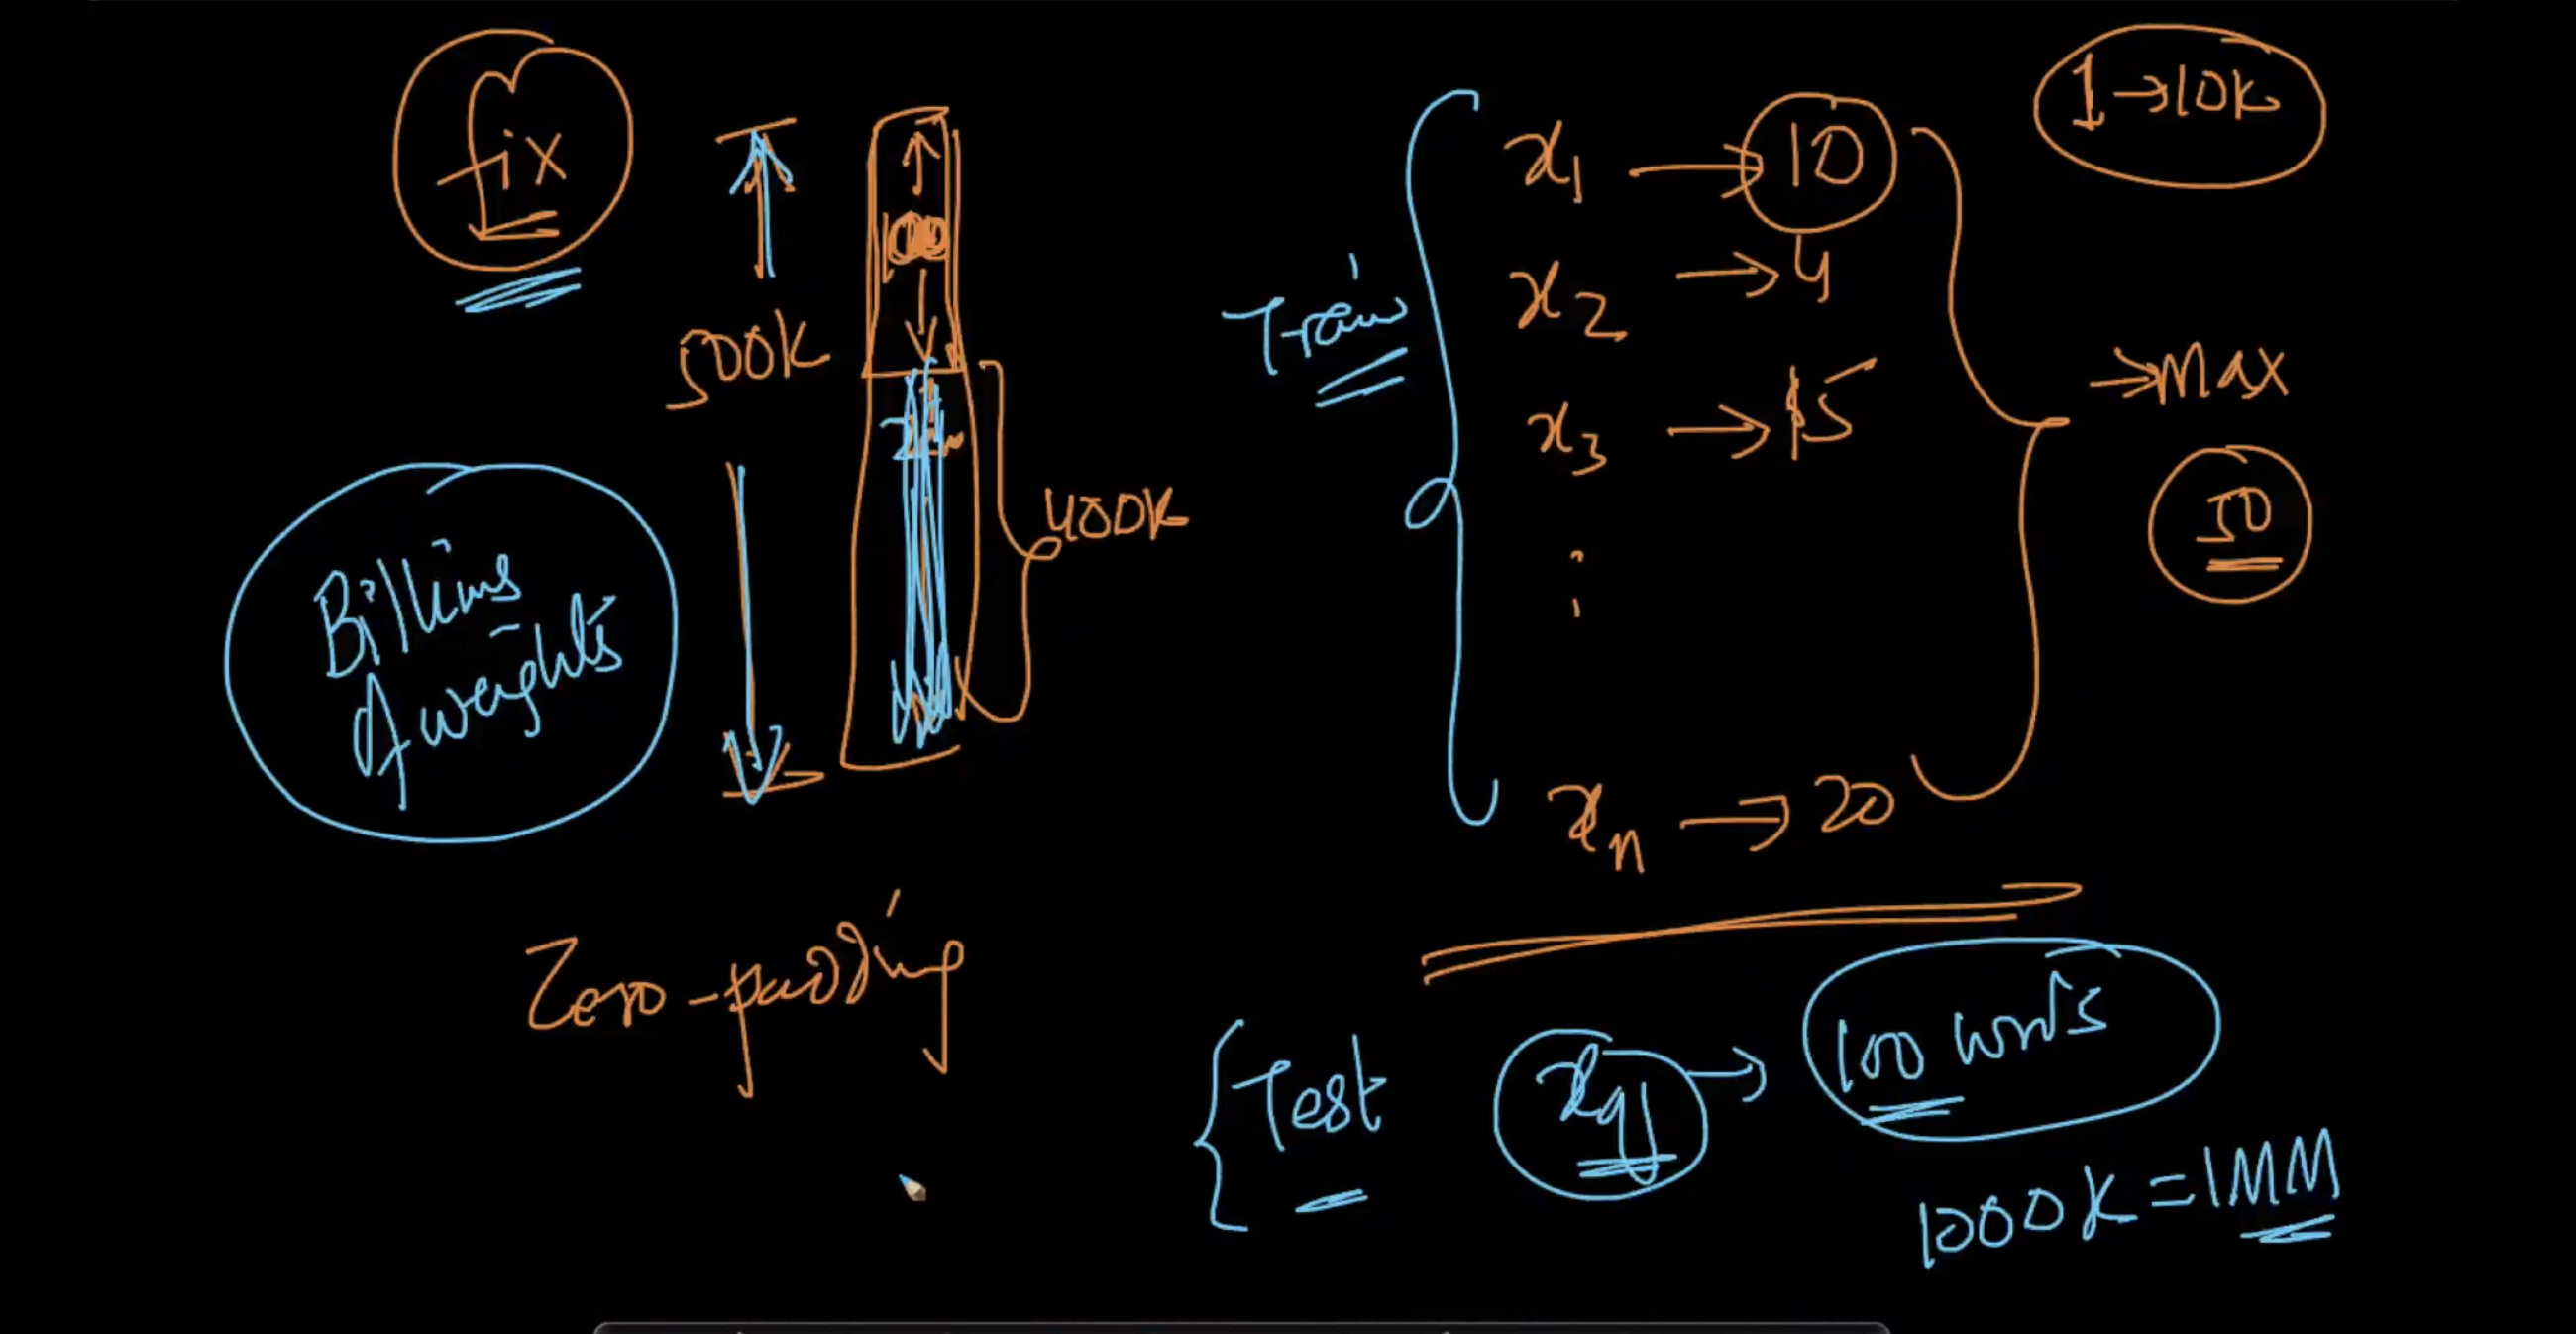 fix
500K
400K
Billions
of weights
Zero-padding
Train
x1 → 10
x2 → 4
x3 → 15
xn → 20
1 → 10K
→ Max
50
Test xq → 100 words
1000K = 1MM